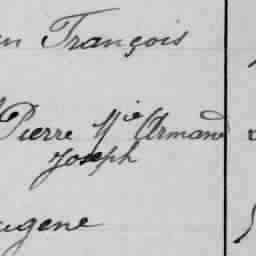 en François
Pierre Mie Armand
Joseph
ugene